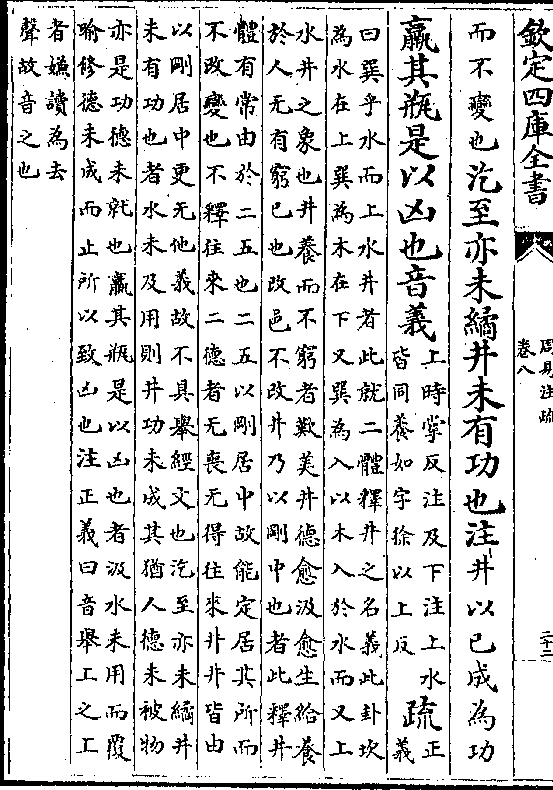 欽定四庫全書
周易注疏
卷八
二十三
而不變也汔至亦未繘井未有功也注井以已成為功
羸其瓶是以凶也音義上時掌反注及下注上水
皆同養如字徐以上反疏正
義
曰巽乎水而上水井者此就二體釋井之名義此卦坎
為水在上巽為木在下又巽為入以木入於水而又上
水井之象也井養而不窮者歎美井德愈汲愈生給養
於人无有窮已也改邑不改井乃以剛中也者此釋井
體有常由於二五也二五以剛居中故能定居其所而
不改變也不釋往來二德者无喪无得往來井井皆由
以剛居中更无他義故不具舉經文也汔至亦未繘井
未有功也者水未及用則井功未成其猶人德未被物
亦是功德未就也羸其瓶是以凶也者汲水未用而覆
喻修德未成而止所以致凶也注正義曰音舉上之上
者嫌讀為去
聲故音之也